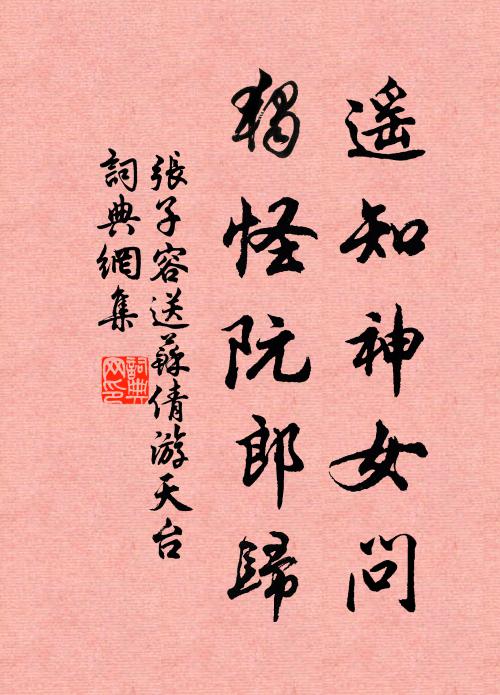 遥知神女問
獨怪阮郎歸
張子容送蘇倩游天台
詞典網集
詞典網印